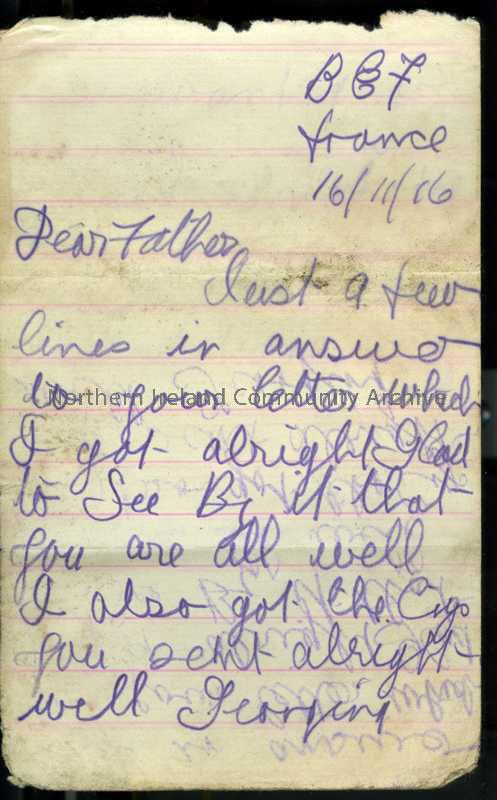 B E F
France
16/11/16
Dear Father
Just a few
lines in answer
to your letter which
Northern Ireland Community Archive
I got alright Glad
to See By it that
you are all well
I also got the Cigs
you sent alright
well